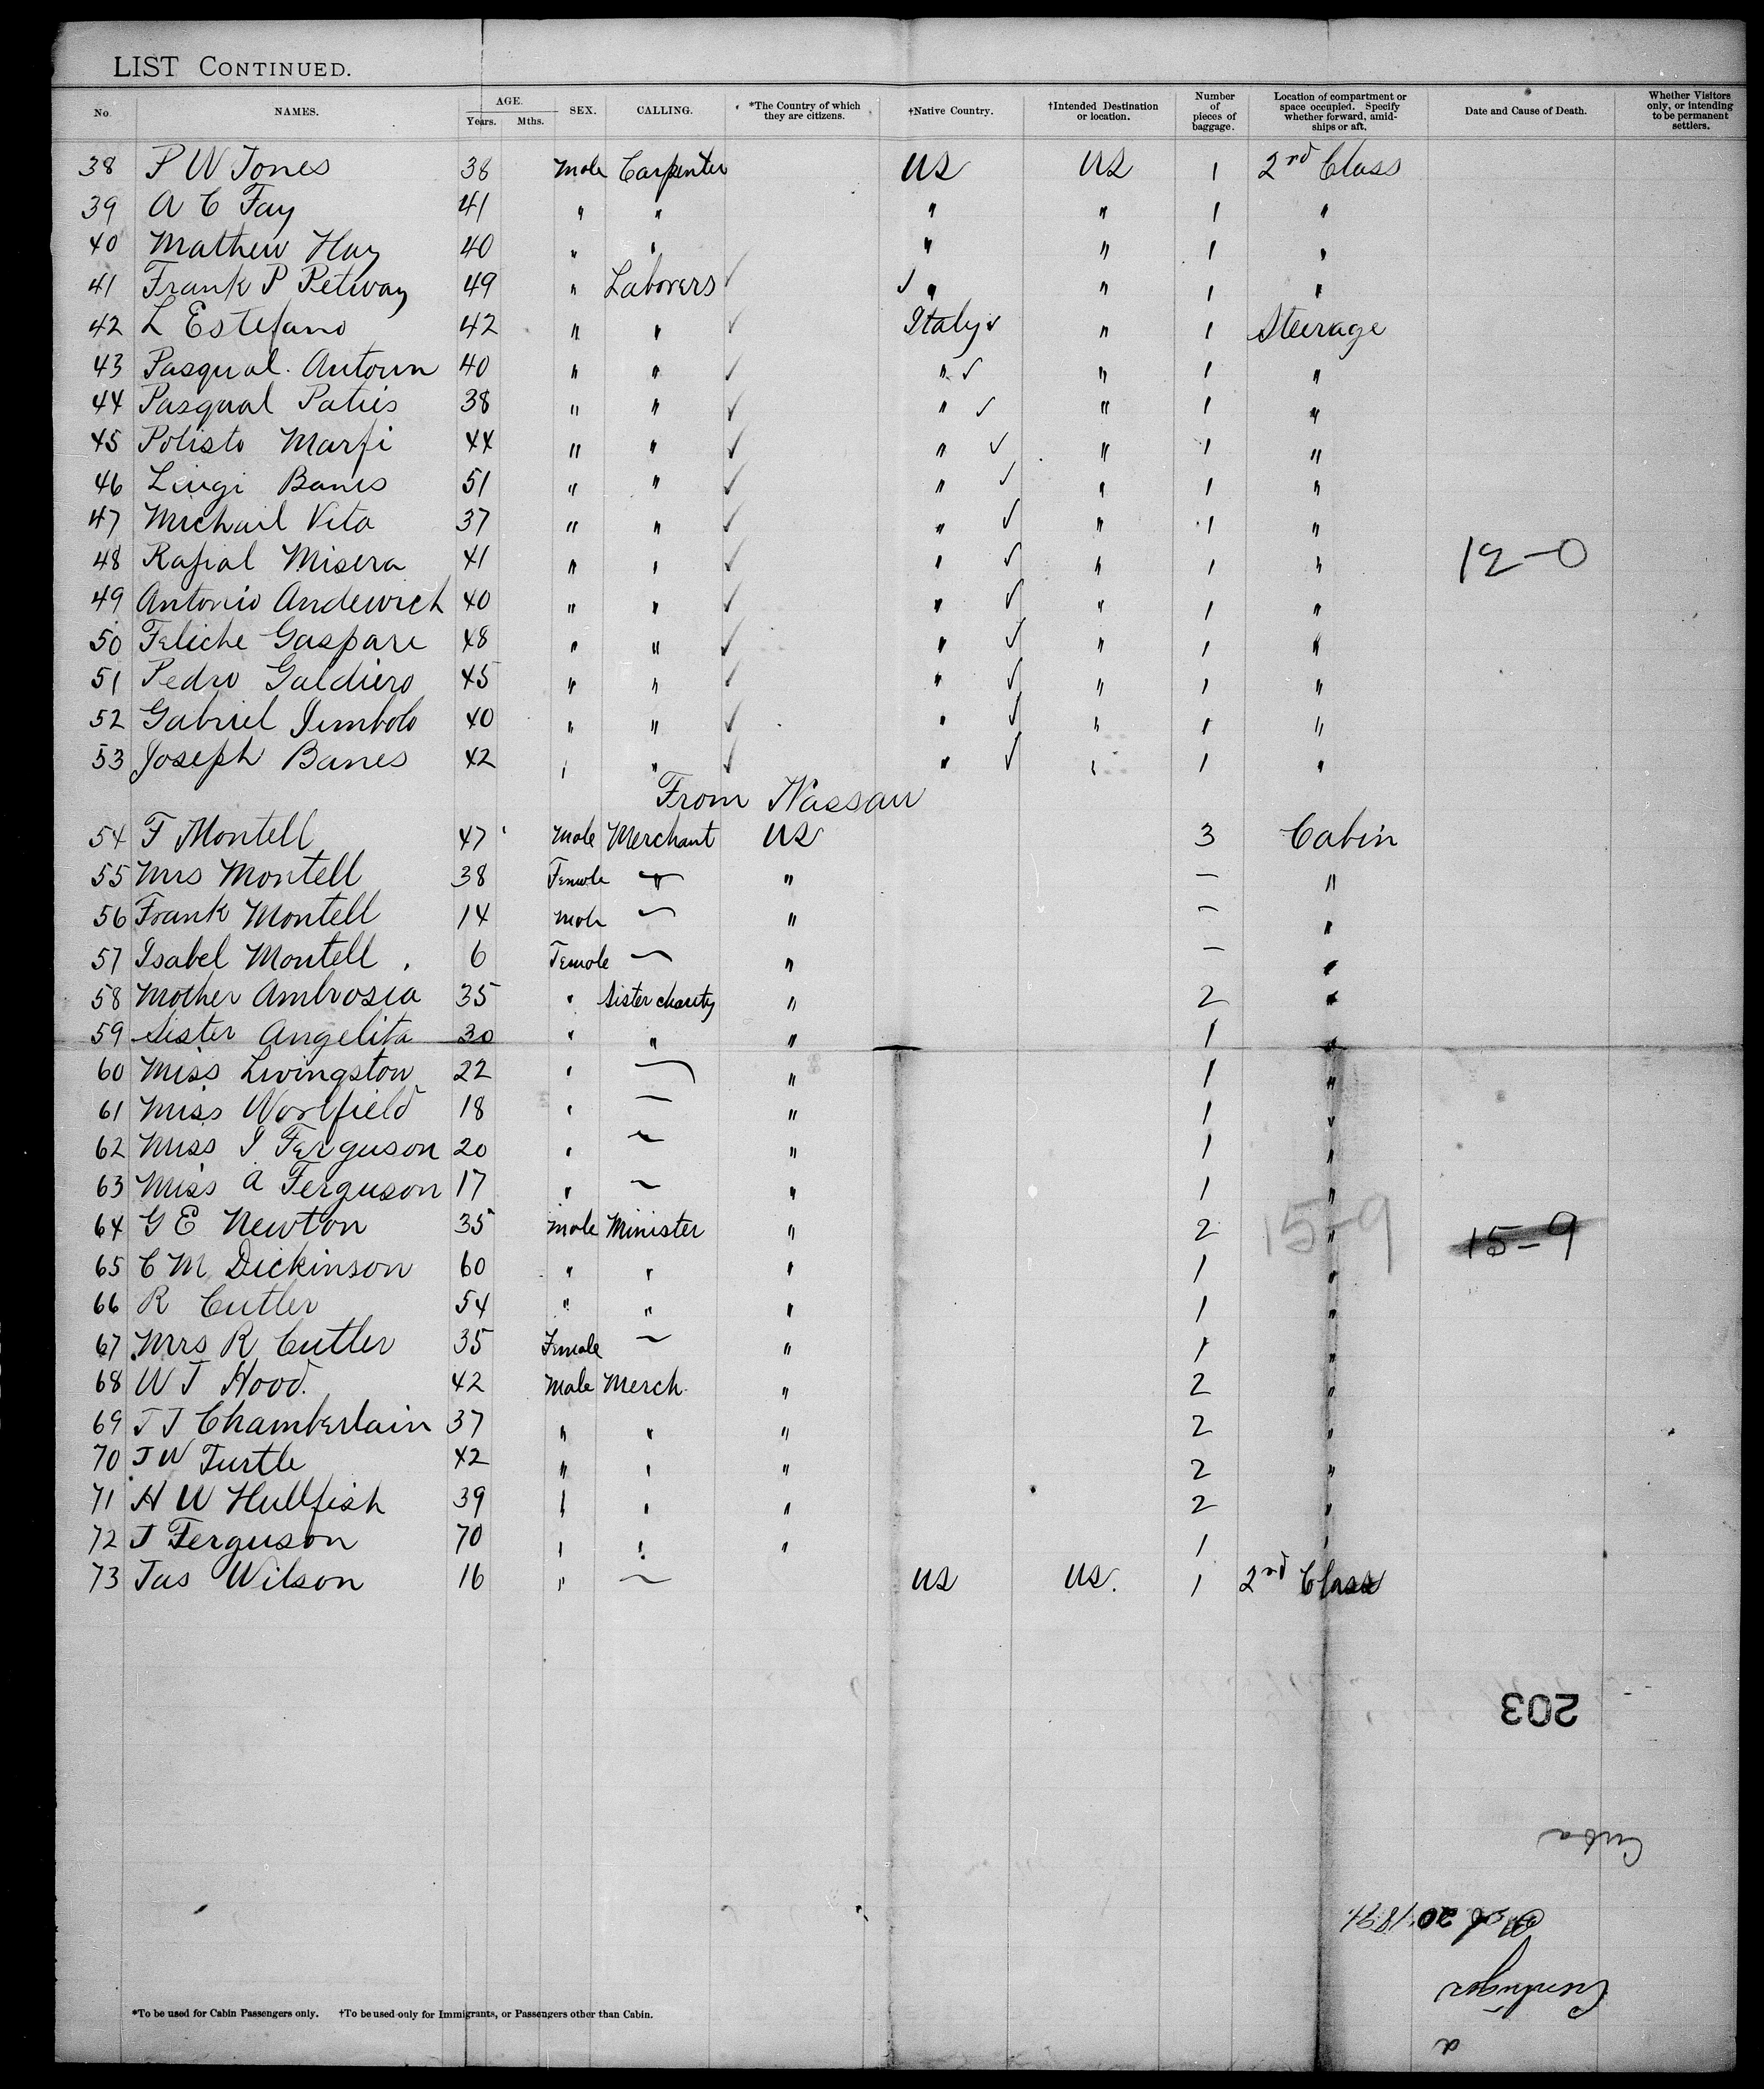 LIST CONTINUED.
No. NAMES. AGE. Years. Mths. SEX. CALLING. *The Country of which they are citizens. †Native Country. †Intended Destination or location. Number of pieces of baggage. Location of compartment or space occupied. Specify whether forward, amidships or aft. Date and Cause of Death. Whether Visitors only, or intending to be permanent settlers.
38 P W Jones 38 Male Carpenter US US 1 2nd Class
39 A C Fay 41 " " " " 1 "
40 Mathew Hay 40 " " " " 1 "
41 Frank P Petway 49 " Laborers ✓ ✓ " " 1 "
42 L Estefano 42 " " ✓ Italy ✓ " 1 Steerage
43 Pasqual Antoun 40 " " ✓ " ✓ " 1 "
44 Pasqual Paties 38 " " ✓ " ✓ " 1 "
45 Polisto Marfi 44 " " ✓ " ✓ " 1 "
46 Liugi Banes 51 " " ✓ " ✓ " 1 "
47 Michail Vito 37 " " ✓ " ✓ " 1 "
48 Rafial Misera 41 " " ✓ " ✓ " 1 " 12-0
49 Antonio Andewich 40 " " ✓ " ✓ " 1 "
50 Feliche Gaspare 48 " " ✓ " ✓ " 1 "
51 Pedro Galdiero 45 " " ✓ " ✓ " 1 "
52 Gabriel Jimbolo 40 " " ✓ " ✓ " 1 "
53 Joseph Banes 42 " " ✓ " ✓ " 1 "
From Nassau
54 F Montell 47 Male Merchant US 3 Cabin
55 Mrs Montell 38 Female — " — "
56 Frank Montell 14 Male — " — "
57 Isabel Montell 6 Female — " — "
58 Mother Ambrosia 35 " Sister charity " 2 "
59 Sister Angelita 30 " " " 1 "
60 Miss Livingston 22 " — " 1 "
61 Miss Worlfield 18 " — " 1 "
62 Miss I Ferguson 20 " — " 1 "
63 Miss A Ferguson 17 " — " 1 "
64 G E Newton 35 Male Minister " 2 " 15-9 15-9
65 C M Dickinson 60 " " " 1 "
66 R Cutler 54 " " " 1 "
67 Mrs R Cutler 35 Female — " 1 "
68 W T Hood. 42 Male Merch. " 2 "
69 J J Chamberlain 37 " " " 2 "
70 J W Turtle 42 " " " 2 "
71 H W Hullfish 39 " " " 2 "
72 J Ferguson 70 " " " 1 "
73 Jas Wilson 16 " — US US. 1 2nd Class
203
Cuba
20 1891.
Cienfuegos
*To be used for Cabin Passengers only. †To be used only for Immigrants, or Passengers other than Cabin.